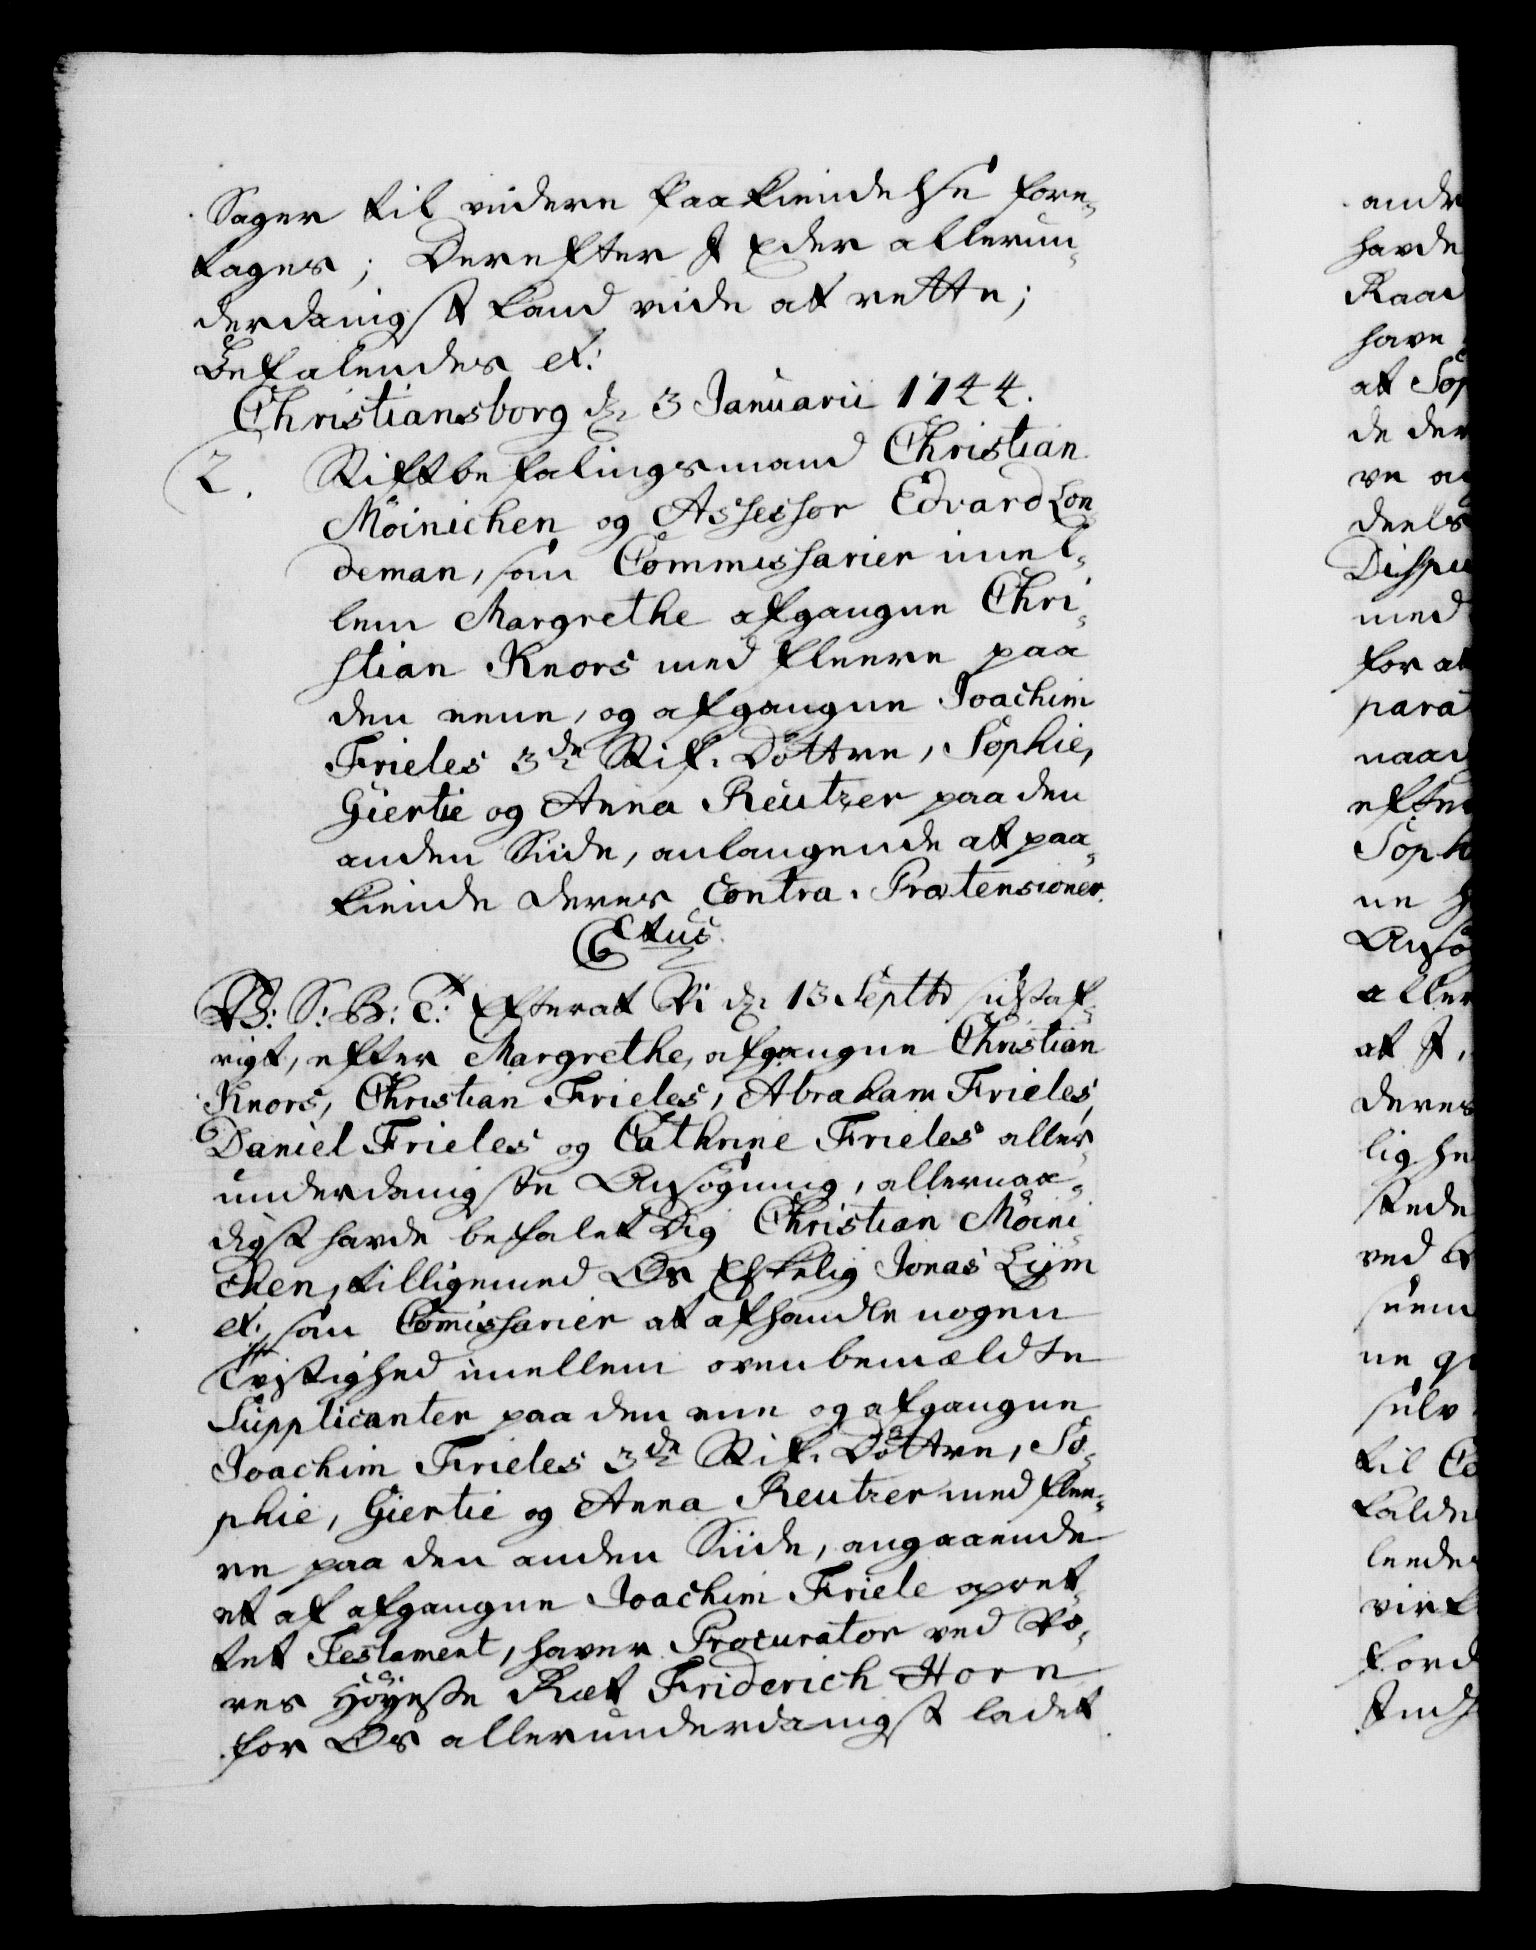 Sager til videre Paakiendelse fore-
tages; Derefter I Eder allerun-
derdanigst kand vide at rette;
Befalendes et:
Christiansborg dn 3 Januarii 1744.
2. Stiftbefalingsmand Christian
Möinichen og Assessor Edvard Lon
deman, som Commissarier imel-
lem Margrethe afgangne Chri-
stian Knors med fleere paa
den eene, og afgangne Joachim
Frieles 3de Stif. Döttre, Sophie,
Giertie og Anna Reutzer paa den
anden Siide, anlangende at paa-
kiende deres Contra. Prætensioner.
C6tus.
V: S: B: T: Efterat Vi dn 13 Septbr sidstaf-
vigt, efter Margrethe, afgangne Christian
Knors, Christian Frieles, Abraham Frieles,
Daniel Frieles og Cathrine Frieles aller-
underdanigste Ansögning, allernaa-
digst havde befalet Dig Christian Möini
chen, tilligemed Os Elskelig Jonas Lijm
et: som Commissarier at afhandle nogen
Tvistighed imellem ovenbemældte
Supplicanter paa den eene og afgangne
Joachim Frieles 3de Stif. Döttre, So-
phie, Giertie og Anna Reutzer med flee-
re paa den anden Siide, angaaende
et af afgangne Joachim Friele opret-
tet Testament, haver Procurator ved Vo-
res Höyeste Ræt Friderich Horn
for Os allerunderdanigst ladet
andr
havde
Raad
have
at Sop
de der
ve a
deels
Dispu
med
for at
para
naad
efter
Soph
ne
Ansög
aller
at I,
deres
lighe
stede
ved
ne
selv
til Co
falde
lende
virk
ford